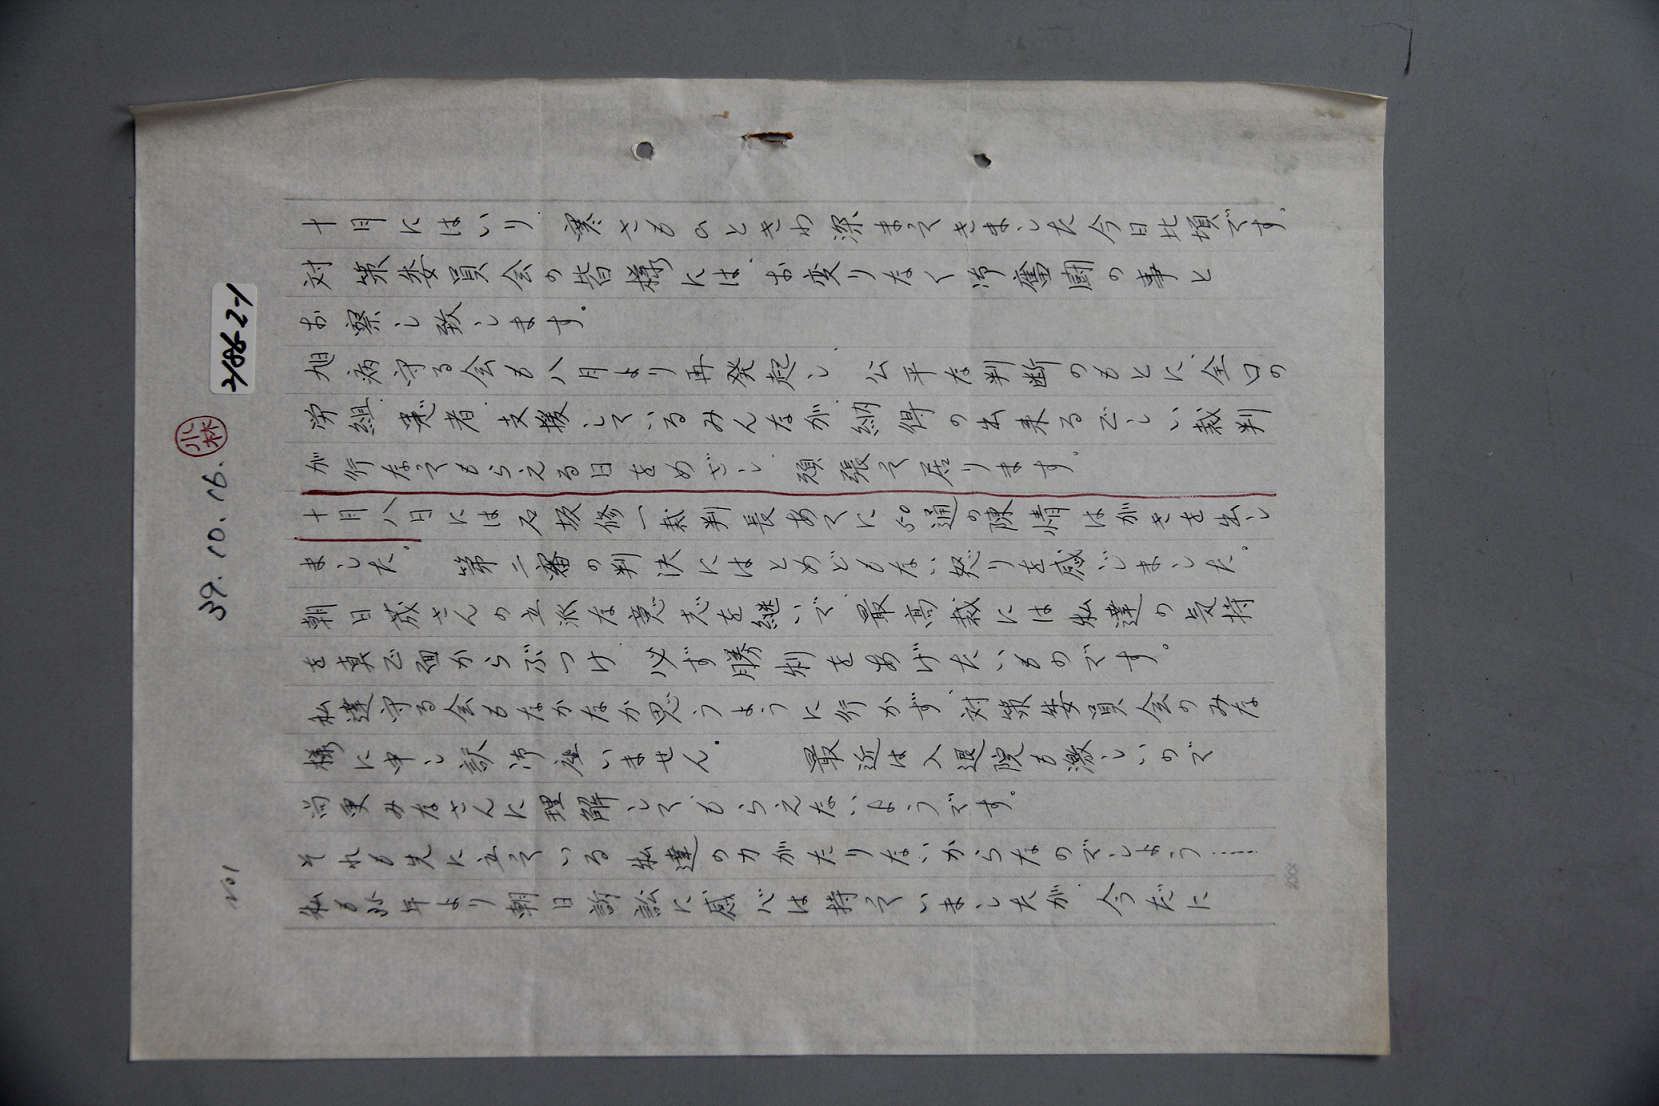 2186-2-1
39.10.16.
小林
No1
十月にはいり 寒さもひときわ深まってきました今日比頃です。
対策委員会の皆様には、お変りなく御奮闘の事と
お察し致します。
旭病守る会も八月より再発起し 公平な判断のもとに、全口の
労組、患者、支援しているみんなが納得の出来る正しい裁判
が行なってもらえる日をめざし 頑張って居ります。
十月八日には石坂修一裁判長あてに50通の陳情はがきを出し
ました。 第二審の判決にはとめどもない怒りを感じました。
朝日茂さんの立派な意志を継いで最高裁には私達の気持
を真正面からぶつけ 必ず勝利をあげたいものです。
私達守る会もなかなか思うように行かず、対策委員会のみな
様に申し訳御座いません。 最近は入退院も激しいので
尚更みなさんに理解してもらえないようです。
それも先に立っている私達の力がたりないからなのでしょう……
私も35年より朝日訴訟に感心は持っていましたが、今だに